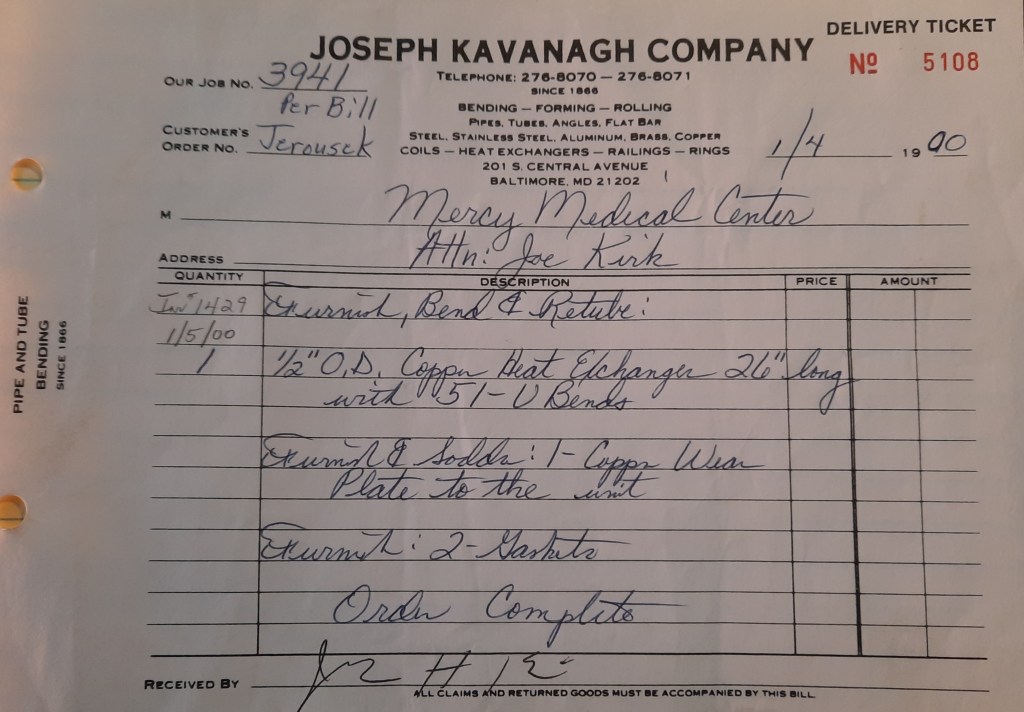 DELIVERY TICKET
JOSEPH KAVANAGH COMPANY
No 5108
OUR JOB NO. 3941
TELEPHONE: 276-8070 — 276-8071
SINCE 1866
Per Bill
BENDING — FORMING — ROLLING
PIPES, TUBES, ANGLES, FLAT BAR
CUSTOMER'S
ORDER NO. Jerousek
STEEL, STAINLESS STEEL, ALUMINUM, BRASS, COPPER
COILS — HEAT EXCHANGERS — RAILINGS — RINGS
1/4 19 00
201 S. CENTRAL AVENUE
BALTIMORE, MD 21202
M Mercy Medical Center
ADDRESS Attn: Joe Kirk
QUANTITY DESCRIPTION PRICE AMOUNT
Inv 1429 Furnish, Bend & Retube:
1/5/00
1 1/2" O.D. Copper Heat Exchanger 26" long
with 51-U Bends
Furnish & Solder: 1- Copper Wear
Plate to the unit
Furnish: 2- Gaskets
Order Complete
RECEIVED BY
ALL CLAIMS AND RETURNED GOODS MUST BE ACCOMPANIED BY THIS BILL
PIPE AND TUBE
BENDING
SINCE 1866